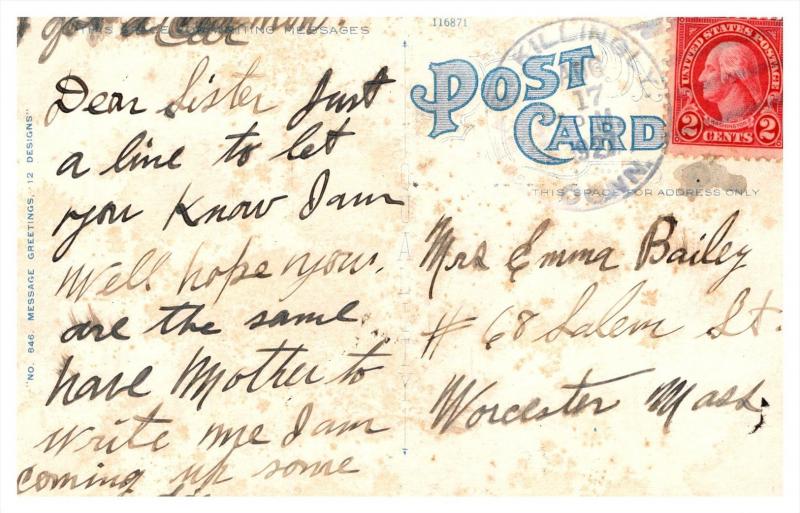 116871
THIS SPACE FOR WRITING MESSAGES
Dear Sister Just
a line to let
you know I am
Well hope your
are the same
have Mother to
write me I am
coming up some
"NO. 846. MESSAGE GREETINGS, 12 DESIGNS"
POST
CARD
KILLINGLY
AUG
17
CONN.
UNITED STATES POSTAGE
WASHINGTON
2 CENTS 2
THIS SPACE FOR ADDRESS ONLY
QUALITY
Mrs Emma Bailey
# 68 Salem St.
Worcester Mass,